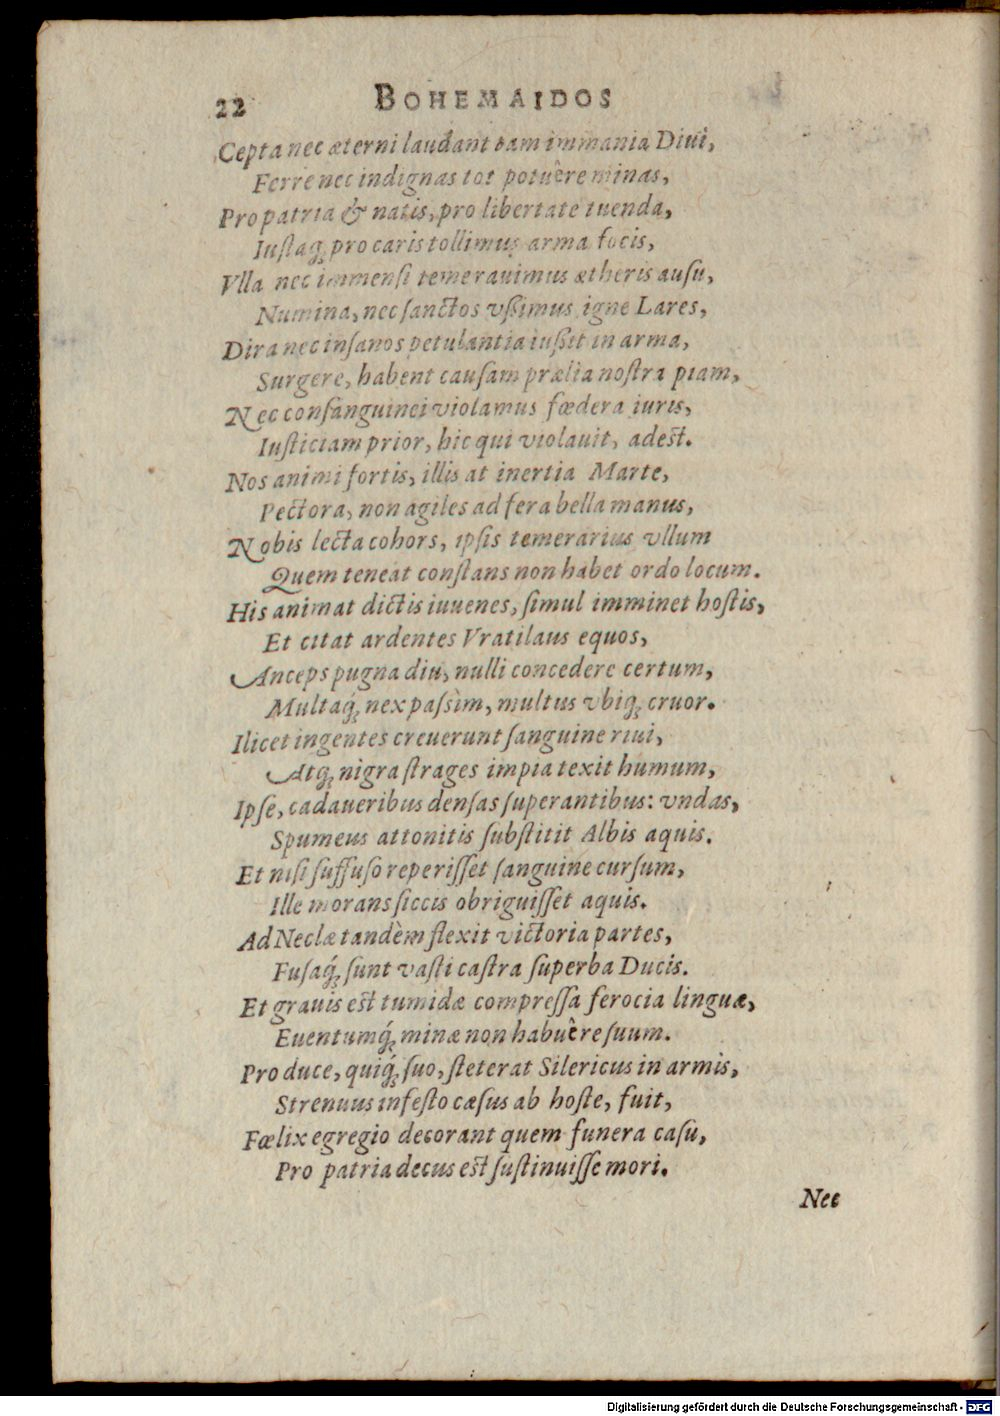 22 BOHEMAIDOS
Cepta nec æterni laudant tam immania Diui,
Ferre nec indignas tot potuêre minas,
Pro patria & natis, pro libertate tuenda,
Iustaq́; pro caris tollimus arma focis,
Vlla nec immensi temerauimus ætheris ausu,
Numina, nec sanctos vßimus igne Lares,
Dira nec insanos petulantia iußit in arma,
Surgere, habent causam prælia nostra piam,
Nec consanguinei violamus fœdera iuris,
Iusticiam prior, hic qui violauit, adest.
Nos animi fortis, illis at inertia Marte,
Pectora, non agiles ad fera bella manus,
Nobis lecta cohors, ipsis temerarius vllum
Quem teneat constans non habet ordo locum.
His animat dictis iuuenes, simul imminet hostis,
Et citat ardentes Vratilaus equos,
Anceps pugna diu, nulli concedere certum,
Multaq́; nex passìm, multus vbiq; cruor.
Ilicet ingentes creuerunt sanguine riui,
Atq; nigra strages impia texit humum,
Ipse, cadaueribus densas superantibus: vndas,
Spumeus attonitis substitit Albis aquis.
Et nisi suffuso reperisset sanguine cursum,
Ille morans siccis obriguisset aquis.
Ad Neclæ tandèm flexit victoria partes,
Fusaq́; sunt vasti castra superba Ducis.
Et grauis est tumidæ compressa ferocia linguæ,
Euentumq́; minæ non habuêre suum.
Pro duce, quiq́; suo, steterat Silericus in armis,
Strenuus infesto cæsus ab hoste, fuit,
Fœlix egregio decorant quem funera casu,
Pro patria decus est sustinuisse mori.
Nec
Digitalisierung gefördert durch die Deutsche Forschungsgemeinschaft - DFG